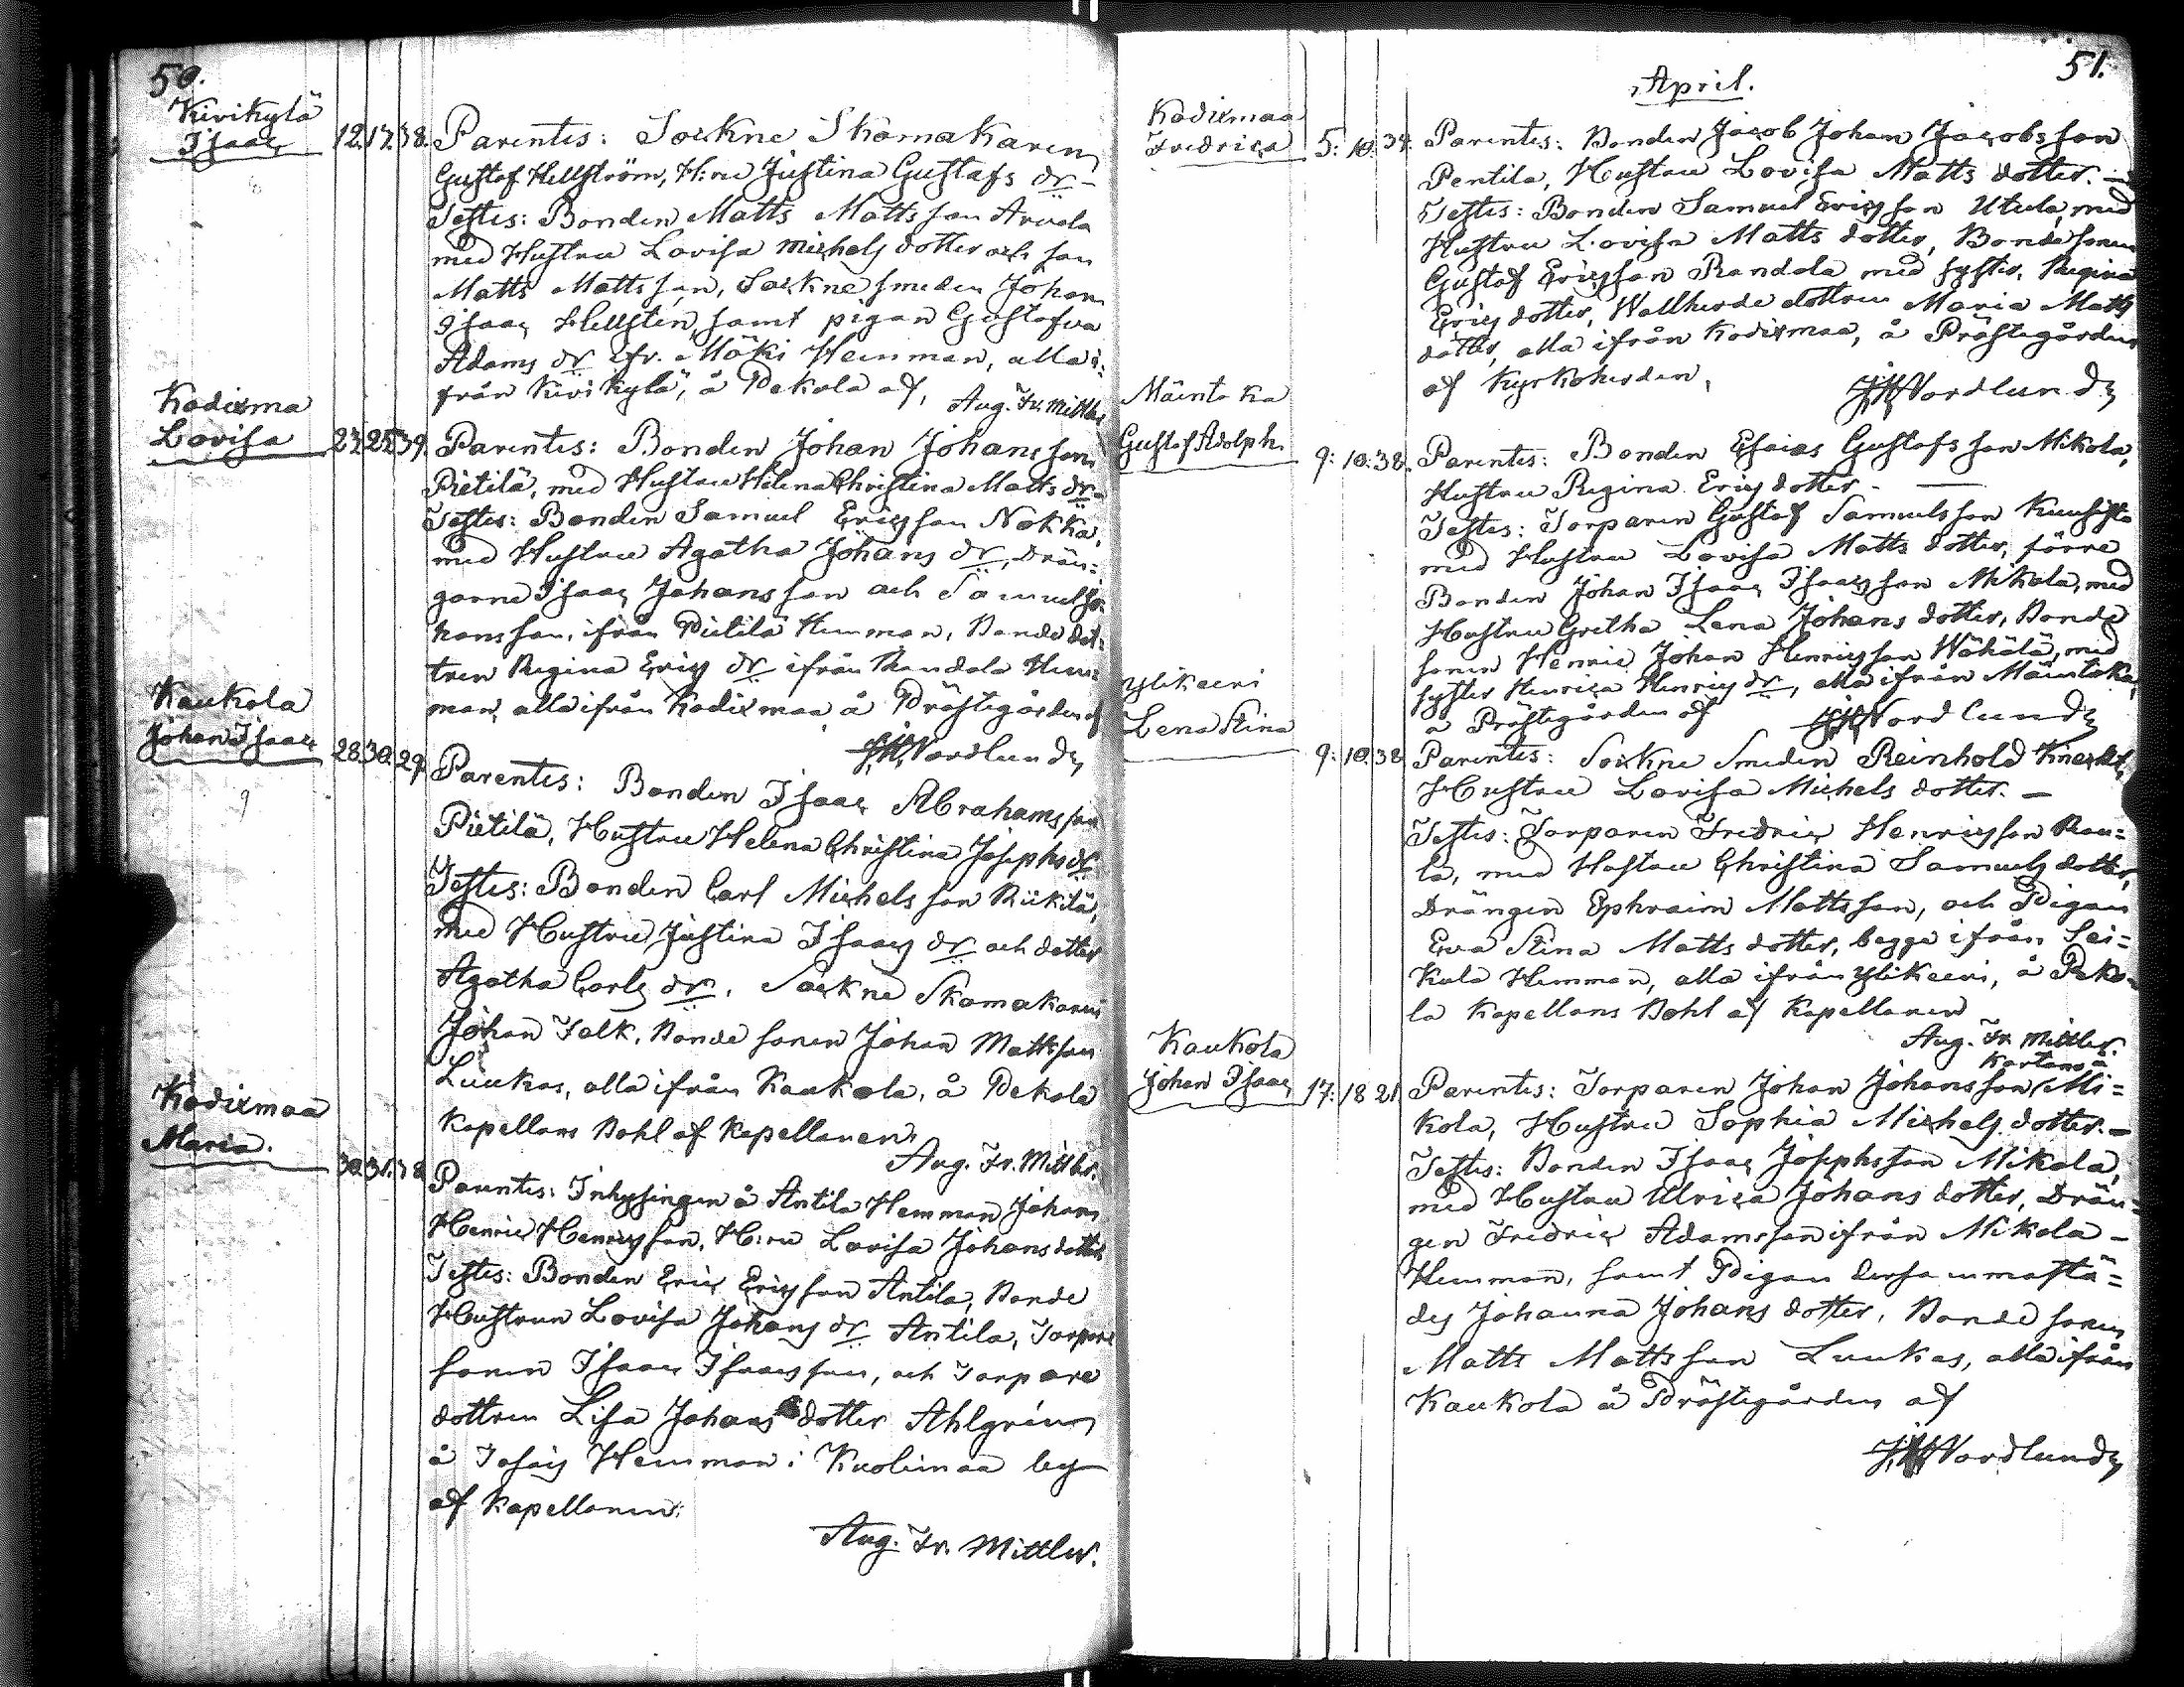 50.
Kivikylä
Isaac
12. 17. 38. Parentes: Sockne Skomakaren
Gustaf Hellström, H:ru Justina Gustafs dr -
Testes: Bonden Matts Mattsson Arvela
med Hustru Lovisa Michels dotter och son
Matts Mattsson, Sockne smeden Johan
Isaac Hellsten, samt pigan Gustafva
Adams dr ifr. Mäki Hemman, alla i:
från Kivikylä, å Pekola af, Aug. Fr. Mittler
Kodixma
Lovisa
23. 25. 39. Parentes: Bonden Johan Johansson
Pietilä, med Hustru Helena Christina Matts dr
Testes: Bonden Samuel Ericsson Nokka,
med Hustru Agatha Johans dr, Drän:
garne Isaac Johansson och Samuel Jo
hansson, ifrån Pietilä Hemman, Bonde dot:
tren Regina Erics dr ifrån Randala Hem:
man, alla ifrån Kodixmaa å Prästegården af
JHNordlund
Kaukola
Johan Isaac
28. 30. 29. Parentes: Bonden Isaac Abrahamsson
Pietilä, Hustru Helena Christina Josephs dr
Testes: Bonden Carl Michelsson Riikilä,
med Hustru Justina Isaacs dr och dotter
Agatha Carls dr. Sockne Skomakaren
Johan Falk, Bonde sonen Johan Mattsson
Luukas, alla ifrån Kaukola, å Pekola
Kapellans Bohl af Kapellanen,
Aug. Fr. Mittler.
Kodixmaa
Maria.
30. 31. 38 Parentes: Inhysingen å Antila Hemman Johan
Henric Henricsson, H:ru Lovisa Johans dotter
Testes: Bonden Eric Ericsson Antila, Bonde
Hustrun Lovisa Johans dr Antila, Torpare
sonen Isaac Isaacsson, och Torpare
dottren Lisa Johans dotter Ahlgrén
å Hemman i Kuolimaa by
af Kapellanen:
Aug. Fr. Mittler.
51.
April.
Kodixmaa
Fredrica
5: 10. 34. Parentes: Bonden Jacob Johan Jacobsson
Pentila, Hustru Lovisa Matts dotter. -
Testes: Bonden Samuel Ericsson Utula, med
Hustru Lovisa Matts dotter, Bonde sonen
Gustaf Ericsson Randala med syster, Regina
Erics dotter, Wallherde dottren Maria Matts
dotter, alla ifrån Kodixmaa, å Prästegården
af Kyrkoherden,
JHNordlund
Mäintaka
Gustaf Adolph.
9: 10. 38. Parentes: Bonden Esaias Gustafsson Mikola,
Hustru Regina Erics dotter -
Testes: Torparen Gustaf Samuelsson Kuusisto
med Hustru Lovisa Matts dotter, förre
Bonden Johan Isaac Isaacsson Mikola, med
Hustru Gretha Lena Johans dotter, Bonde
sonen Henric Johan Henricsson Wähälä, med
syster Henrica Henrics dr, alla ifrån Mäintaka,
å Prästegården af JHNordlund
Ylikeeri
Lena Stina
9: 10. 38 Parentes: Sockne Smeden Reinhold Knecht,
Hustru Lovisa Michels dotter. -
Testes: Torparen Fredric Henricsson Rau=
la, med Hustru Christina Samuels dotter,
Drängen Ephraim Mattsson, och Pigan
Eva Stina Matts dotter, begge ifrån Sei=
Kula Hemman, alla ifrån Ylikeeri, å Peko=
la Kapellans Bohl af Kapellanen
Aug. Fr. Mittler.
Kaukola
Johan Isaac
Kartano å
17: 18 21. Parentes: Torparen Johan Johansson Mi=
kola, Hustru Sophia Michels dotter. -
Testes: Bonden Isaac Josephsson Mikola,
med Hustru Ulrica Johans dotter, Drän=
gen Fredric Adamsson ifrån Mikola -
Hemman, samt Pigan dersammastä=
des Johanna Johans dotter, Bonde sonen
Matts Mattsson Luukas, alla ifrån
Kaukola å Prästegården af
JHNordlund